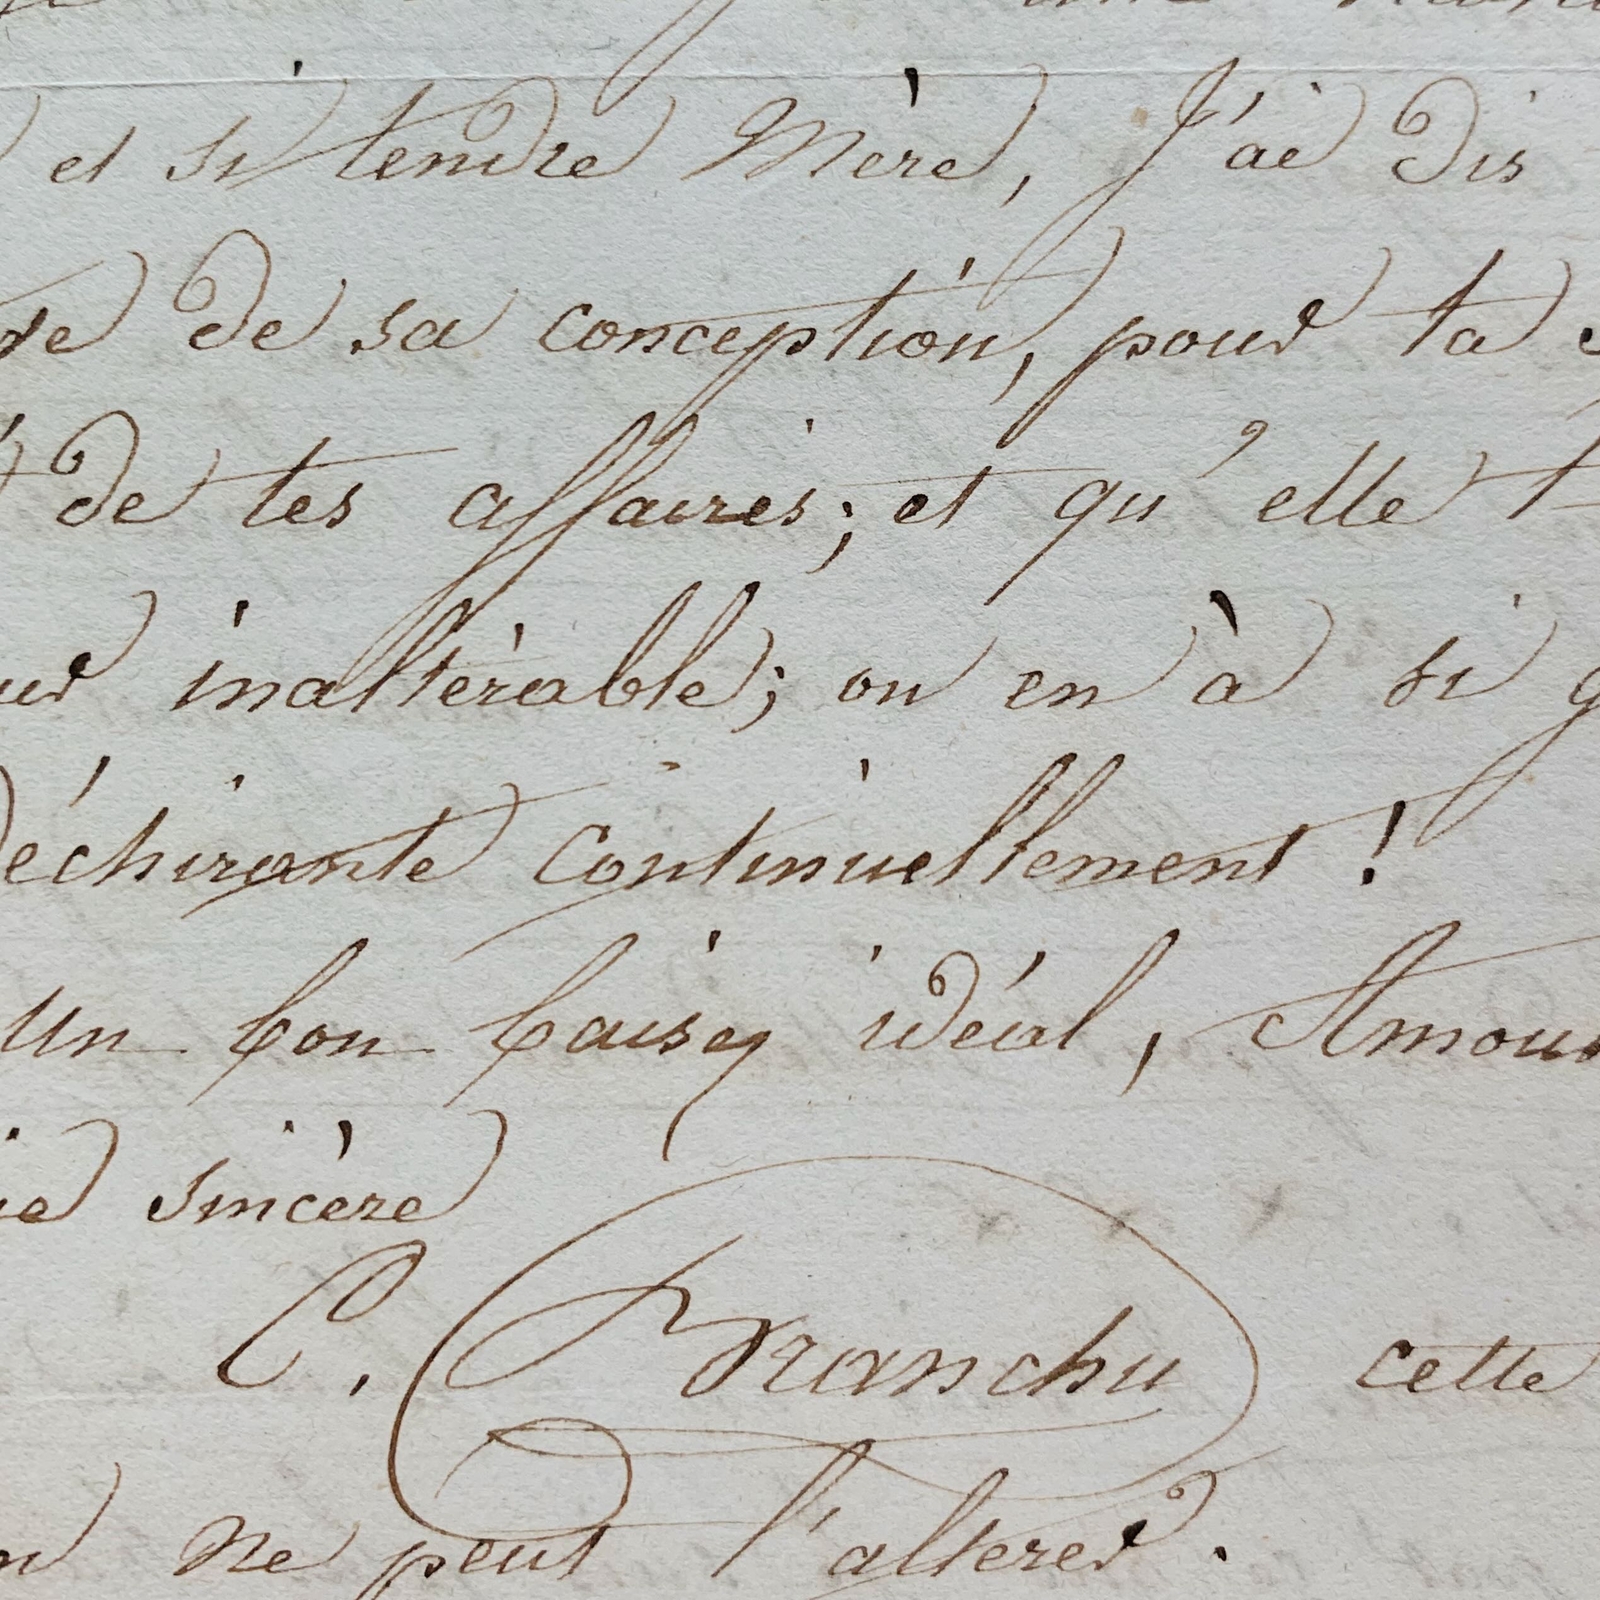 et si tendre Mère, J'ai dis
de sa conception, pour ta
de tes affaires; et qu'elle t
inaltèrable; on en à si
échirante continuellement !
Un bon baiser idéal, Amour
sincère
C. Branchu cette
ne peut l'alterer.